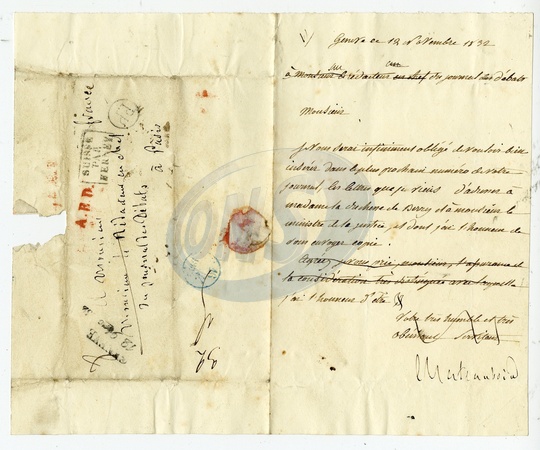 1/
Geneve ce 19 Novembre 1832
à Monsieur le rédacteur en chef du journal des débats
Monsieur
je vous serai infiniment obligé de vouloir bien
insérer dans le plus prochain numéro de votre
journal, les lettres que je viens d'adresser à
madame la duchesse de Berry et à monsieur le
ministre de la justice, et dont j'ai l'honneur de
vous envoyer copie.
Agréez, je vous prie, monsieur, l'assurance et
la considération très distinguée avec laquelle
j'ai l'honneur d'être
Votre très humble et très
obéissant Serviteur
A.E.D.
SUISSE
PAR
FERNEY
à Monsieur
Monsieur le Rédacteur en chef
du journal des Débats
à Paris
france